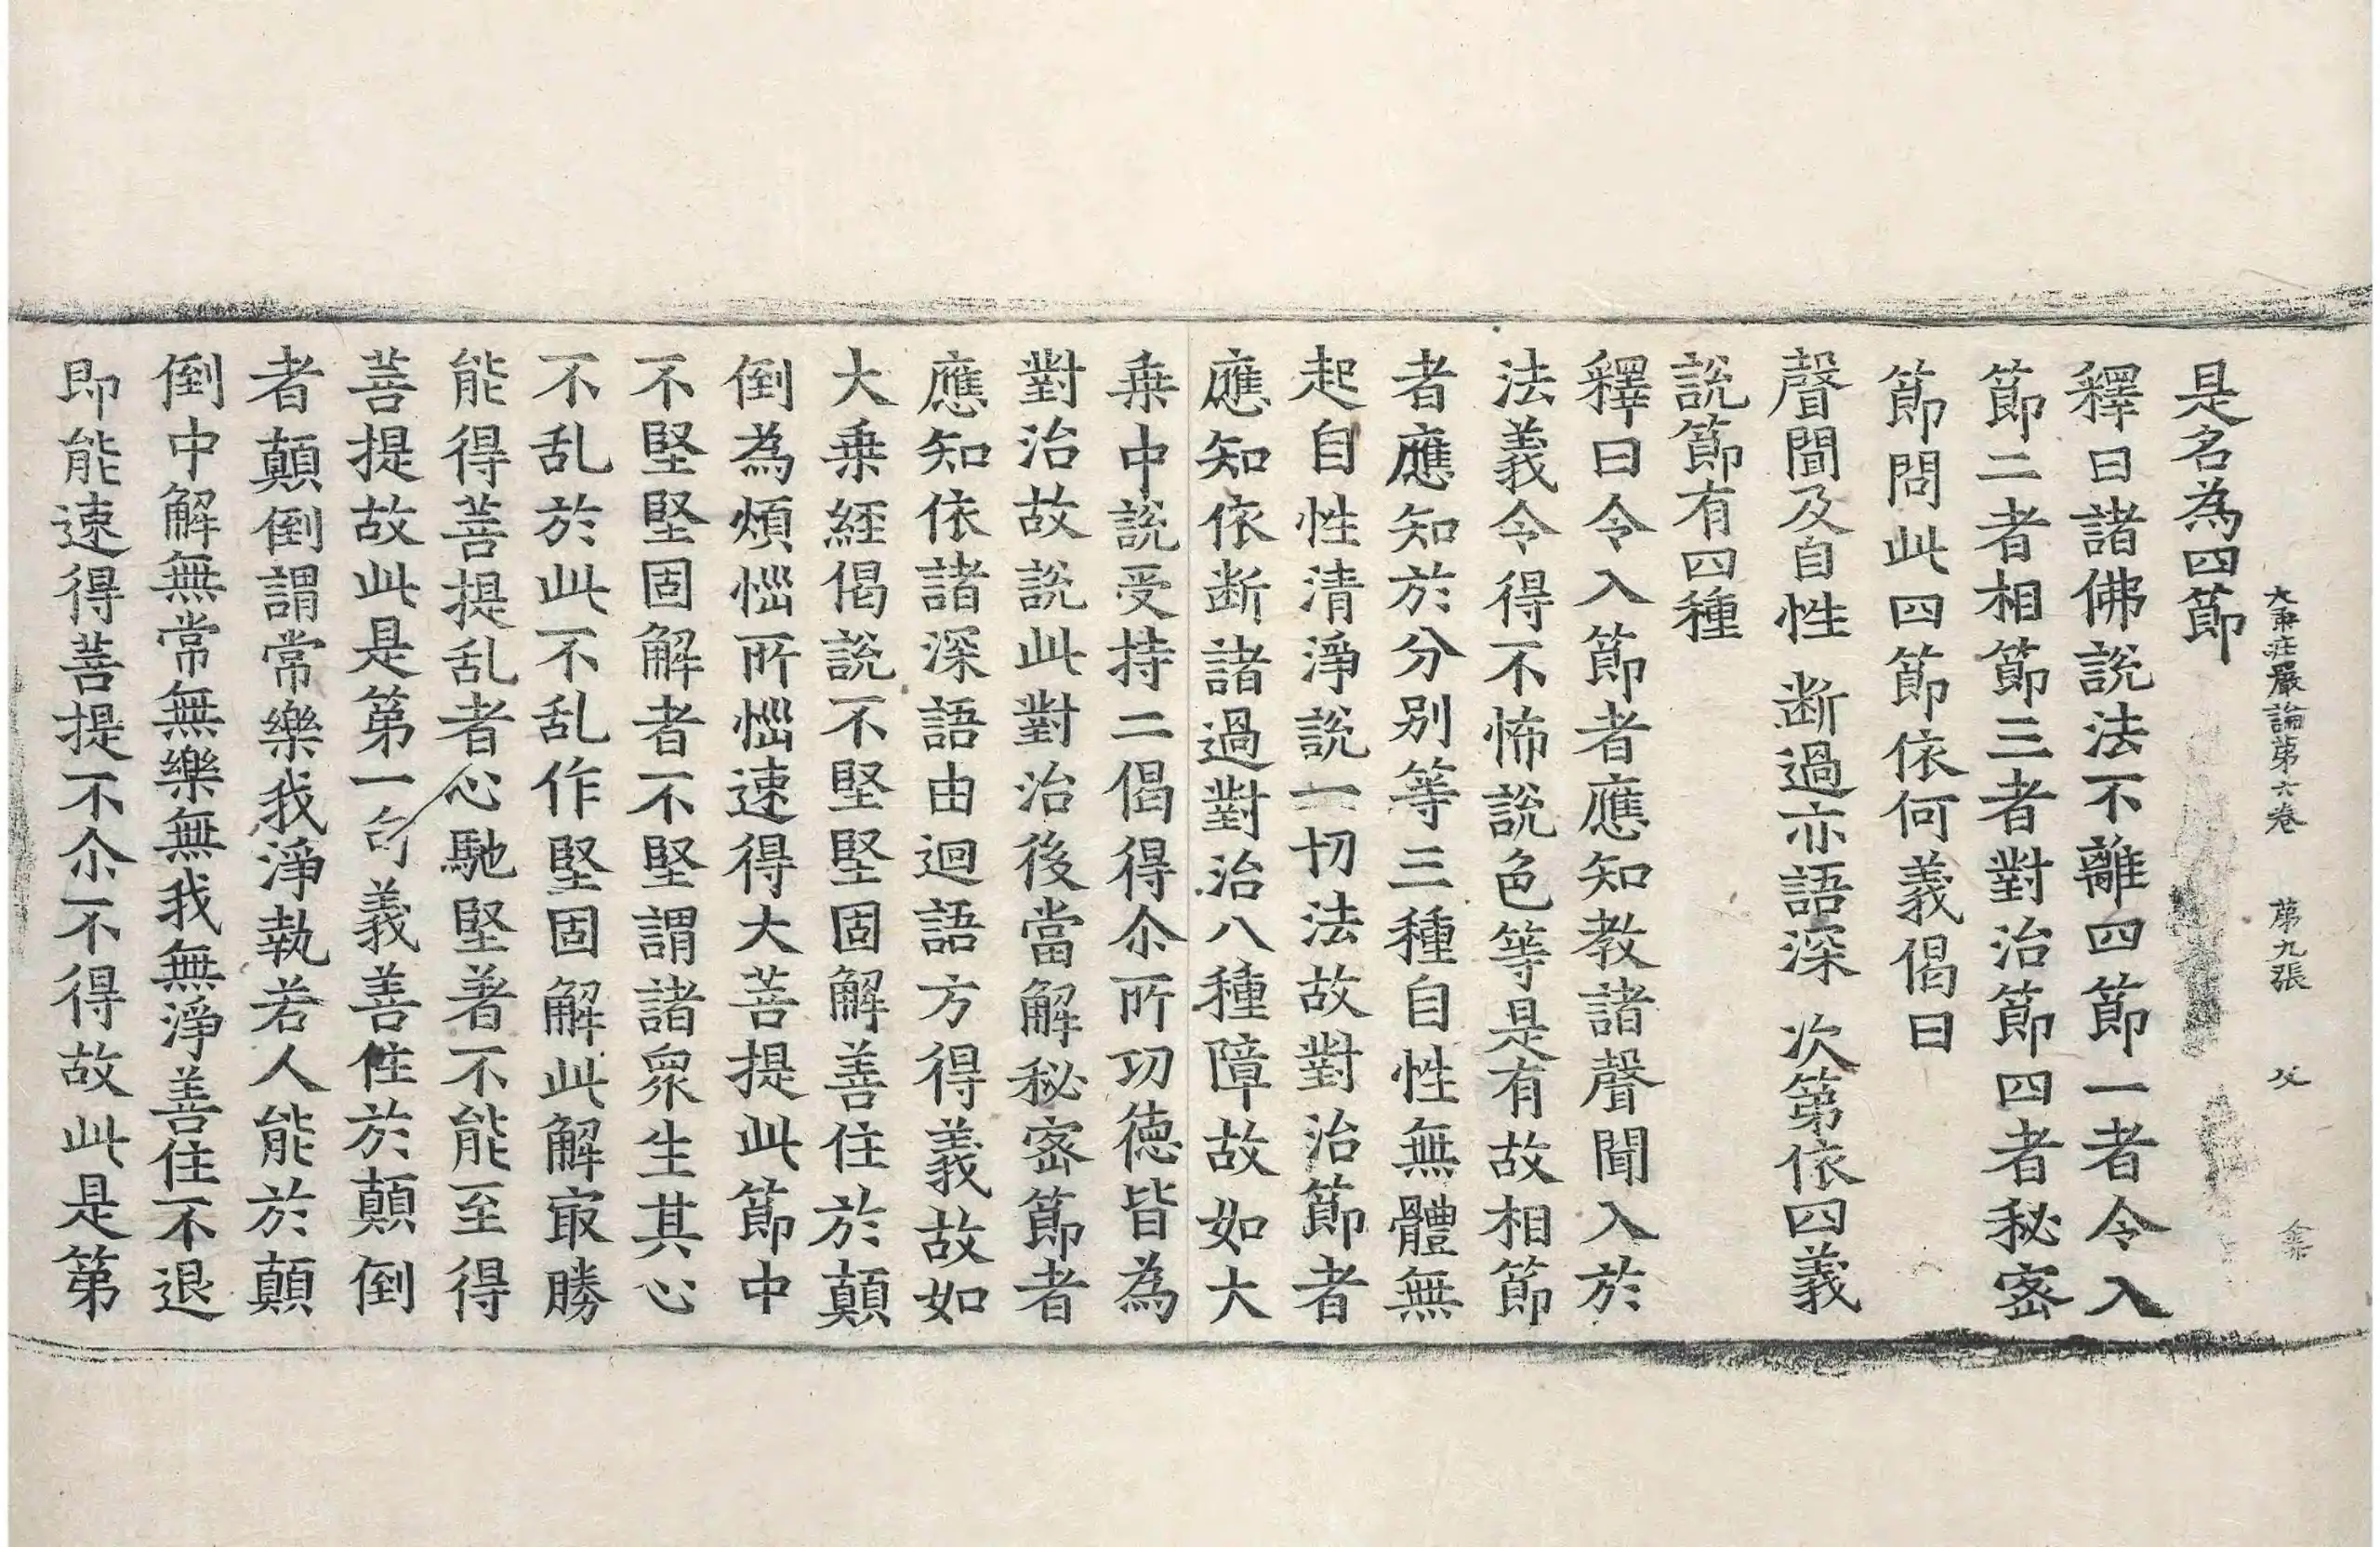 大乗莊嚴論第六卷　第九張　父　㑒
是名為四節
釋曰諸佛說法不離四節一者令入
節二者相節三者對治節四者秘宻
節問此四節依何義偈曰
聲聞及自性　断過亦語深　次第依四義
說節有四種
釋曰令入節者應知教諸聲聞入於
法義令得不怖說色等是有故相節
者應知於分别等三種自性無體無
起自性清淨說一切法故對治節者
應知依断諸過對治八種障故如大
乗中說受持二偈得尒所功德皆為
對治故說此對治後當解秘宻節者
應知依諸深語由迴語方得義故如
大乗經偈說不堅堅固解善住於顛
倒為煩惱所惱速得大菩提此節中
不堅堅固解者不堅謂諸衆生其心
不乱於此不乱作堅固解此解㝡勝
能得菩提乱者心馳堅著不能至得
菩提故此是第一句義善住於顛倒
者顛倒謂常樂我淨執若人能於顛
倒中解無常無樂無我無淨善住不退
即能速得菩提不尒不得故此是第